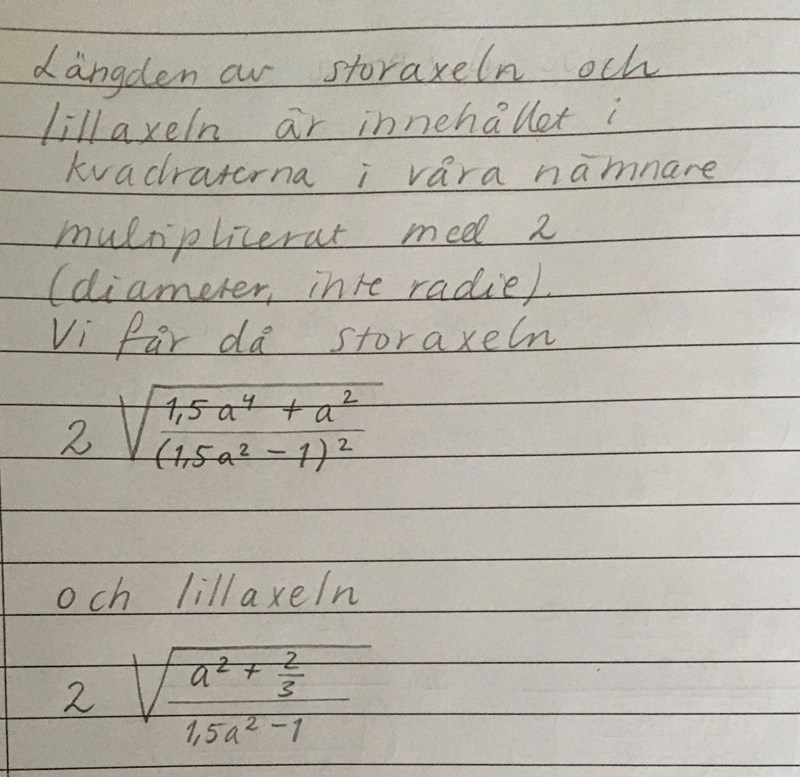 Längden av storaxeln och
lillaxeln är innehållet i
kvadraterna i våra nämnare
multiplicerat med 2
(diameter, inte radie).
Vi får då storaxeln
2 √((1,5a⁴ + a²)/(1,5a² - 1)²)
och lillaxeln
2 √((a² + 2/3)/(1,5a² - 1))